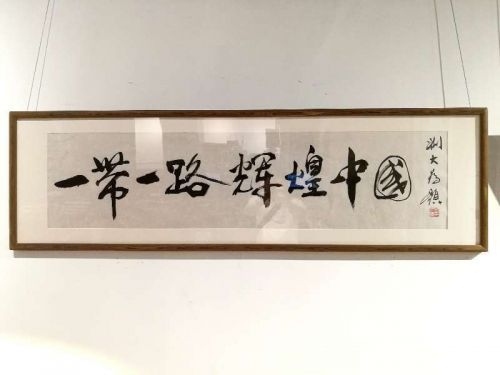 一带一路辉煌中国
刘大为题